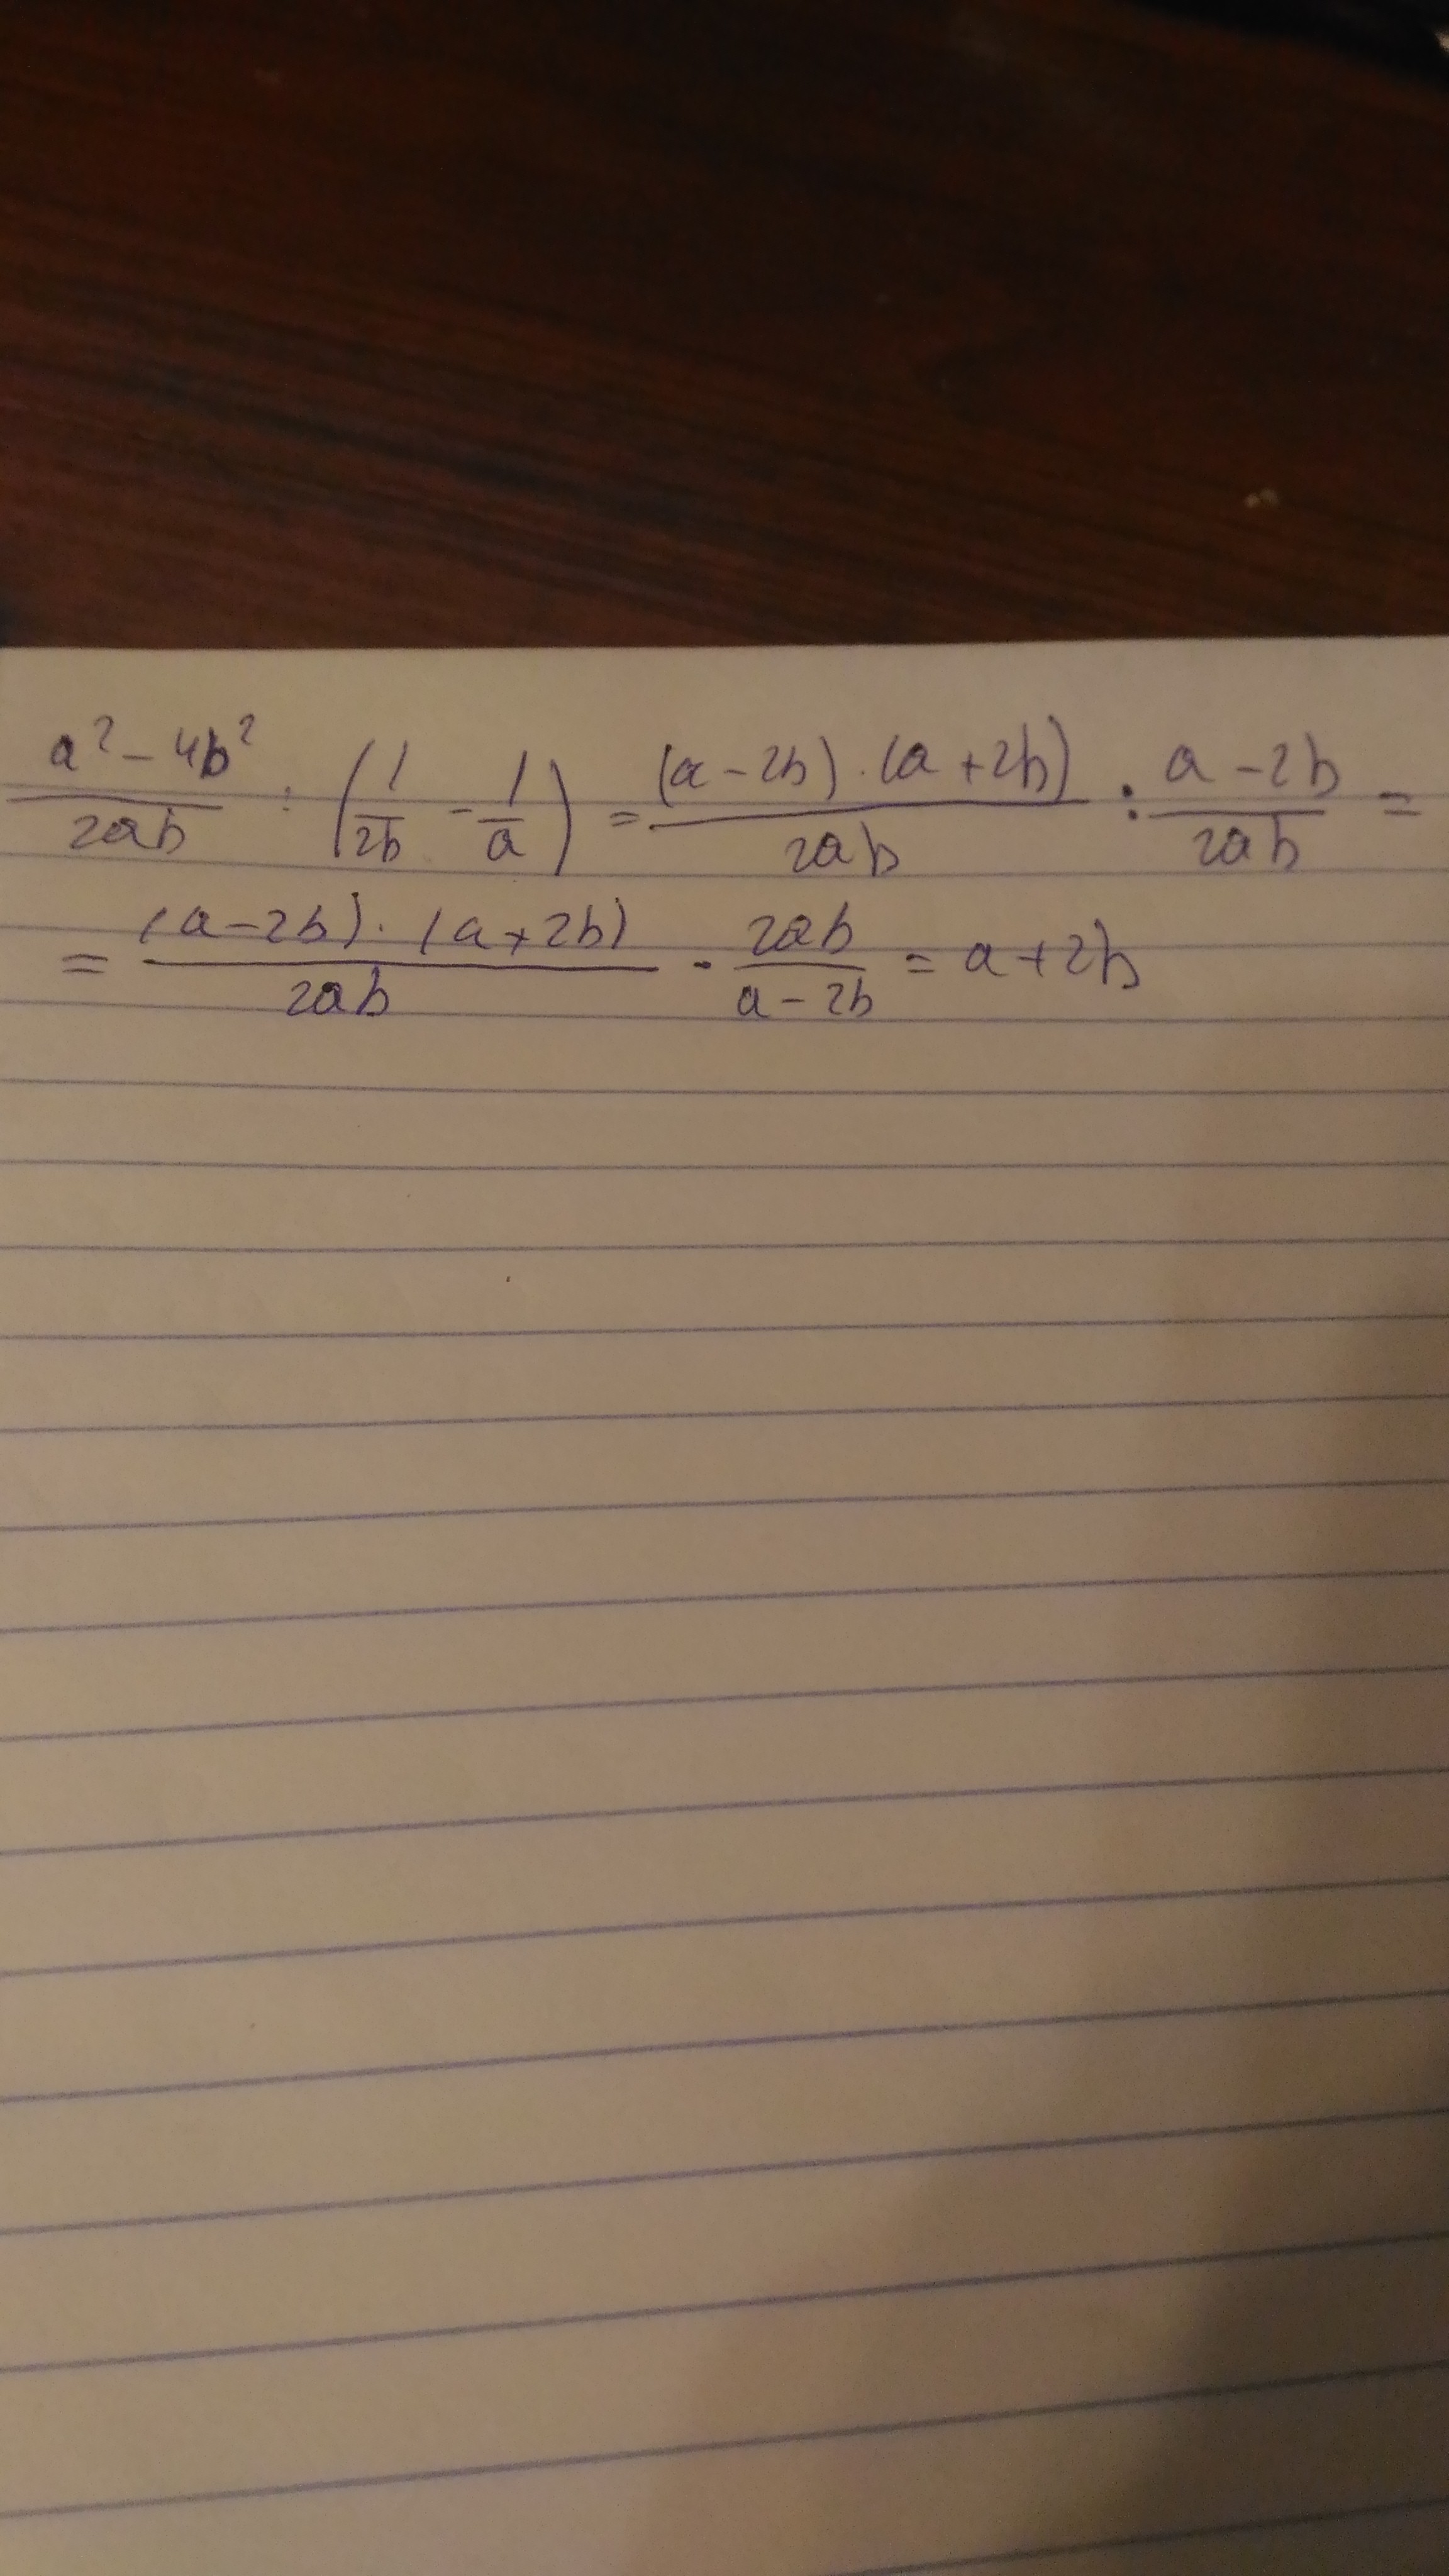 (a² - 4b²)/(2ab) : (1/(2b) - 1/a) = ((a - 2b) · (a + 2b))/(2ab) : (a - 2b)/(2ab) =
= ((a - 2b) · (a + 2b))/(2ab) · (2ab)/(a - 2b) = a + 2b